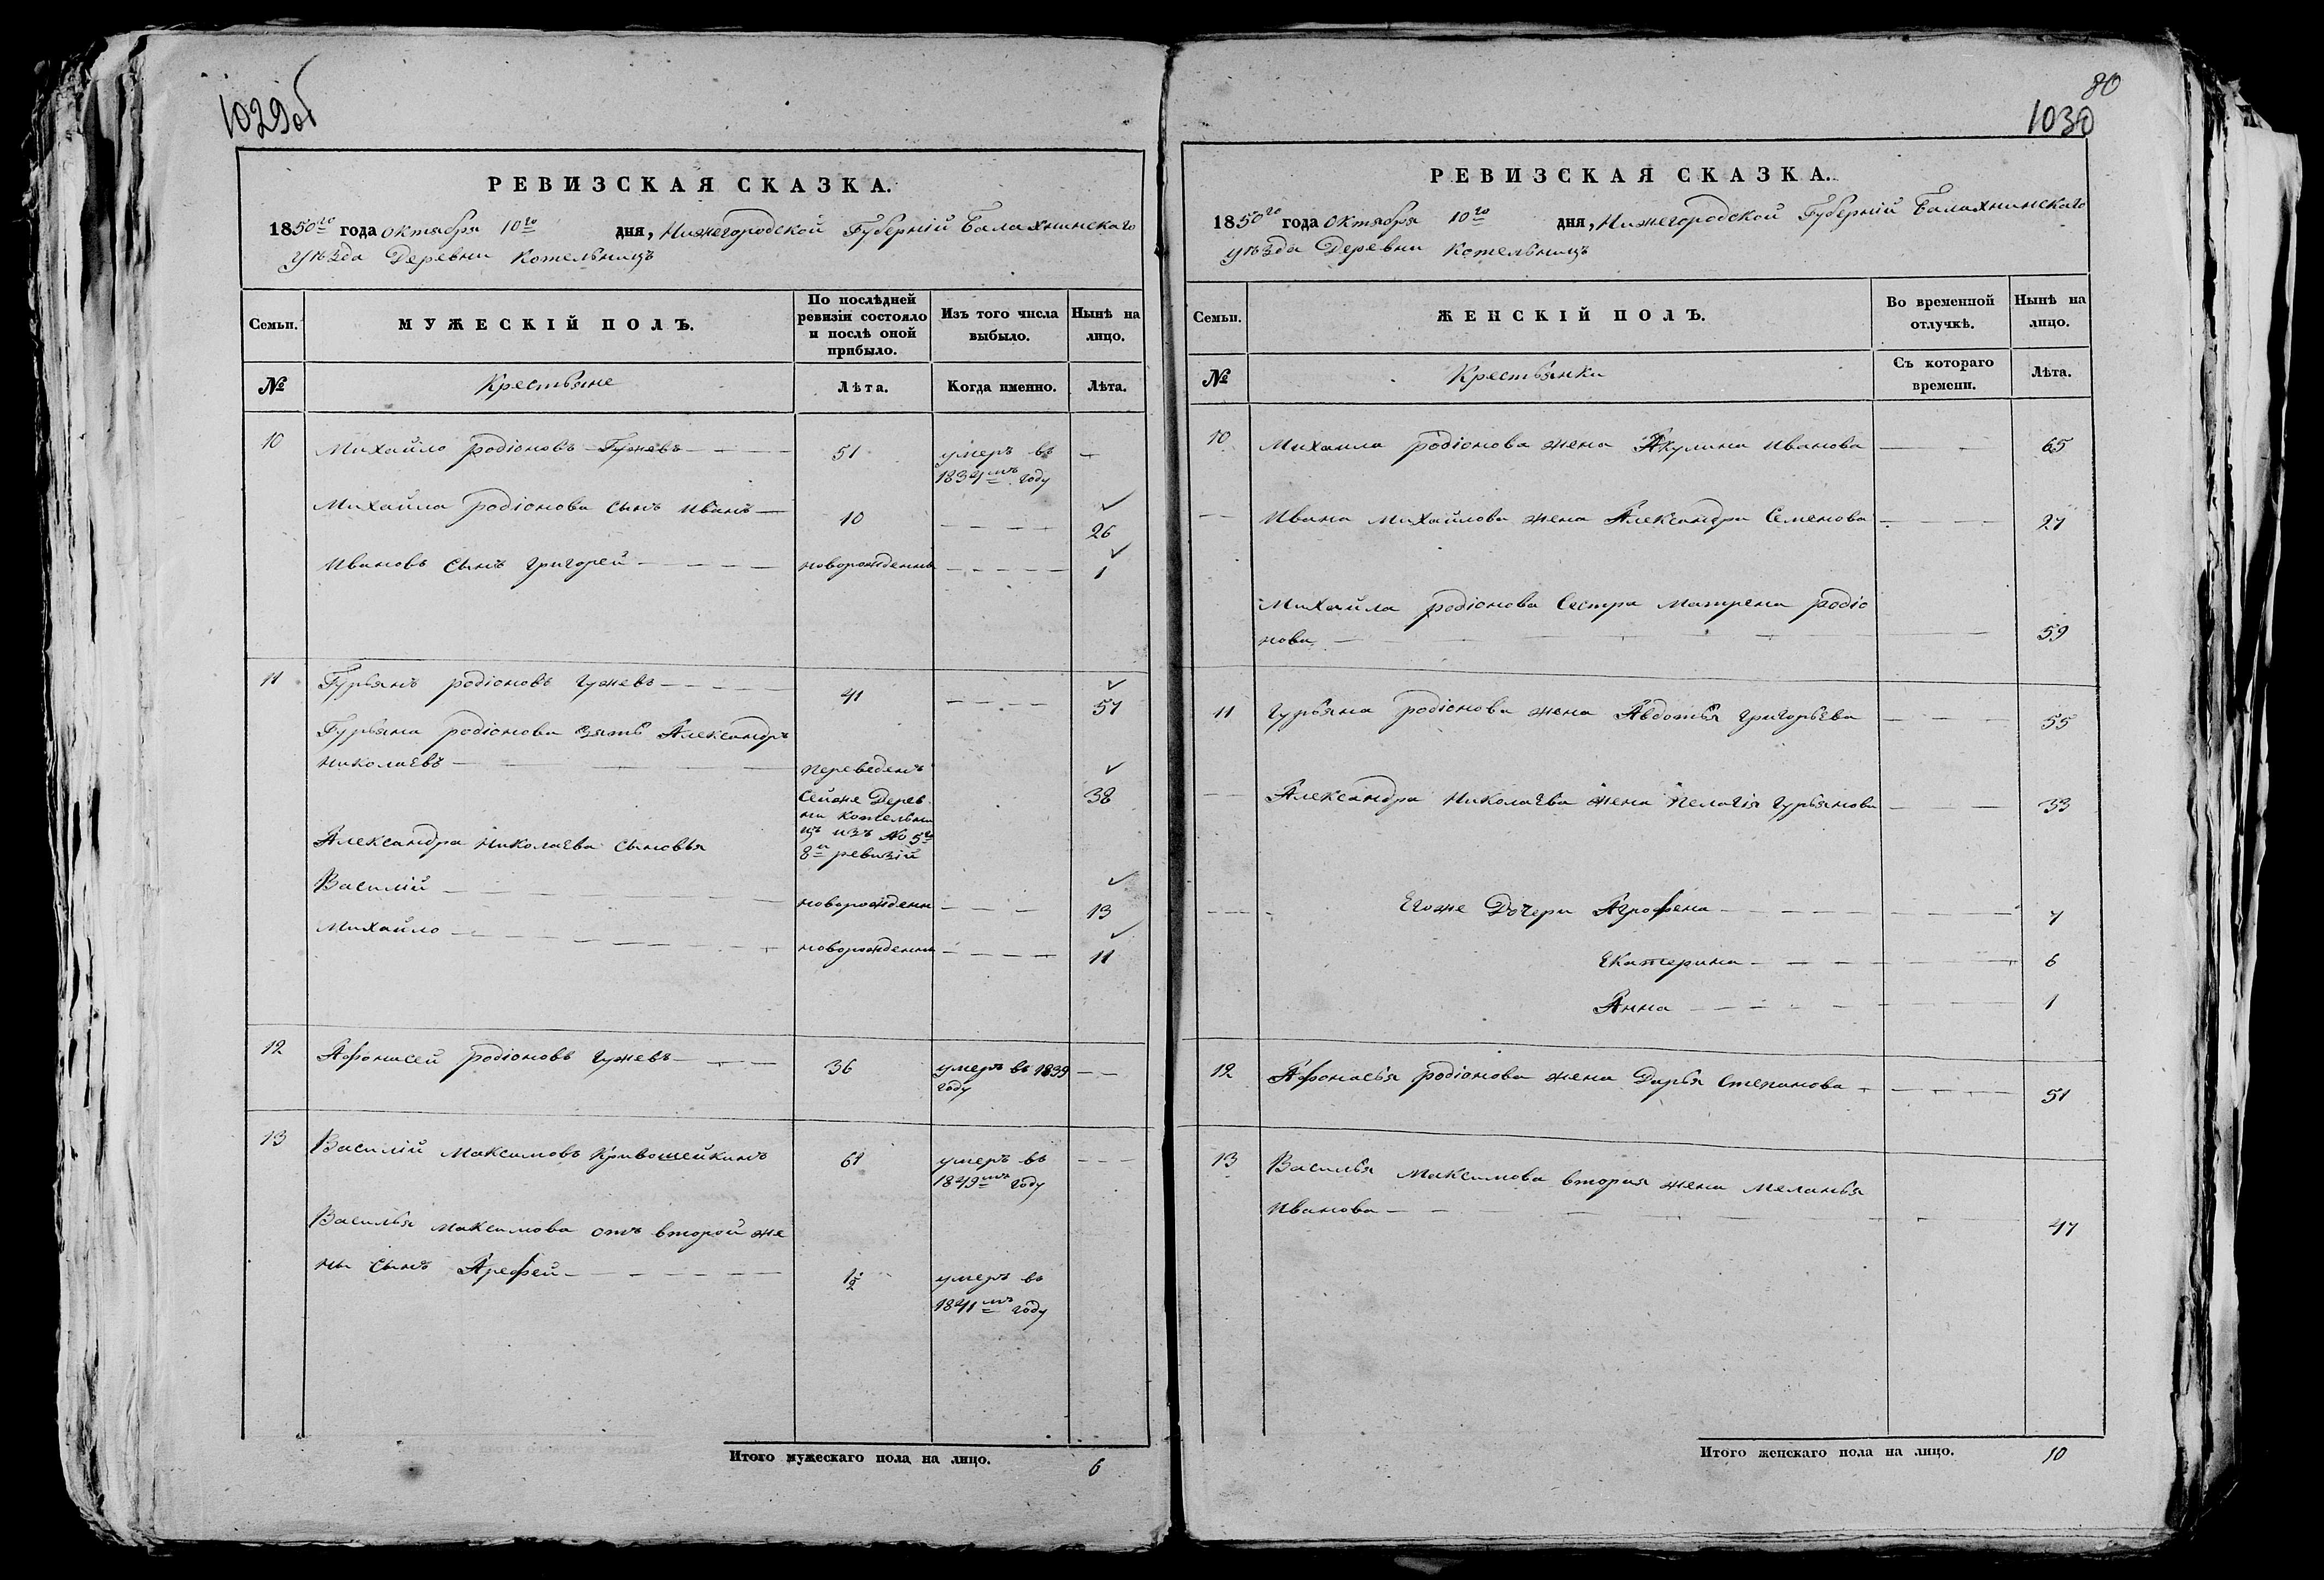 1029об
РЕВИЗСКАЯ СКАЗКА.
1850го года октября 10го дня, Нижегородской Губерній Балахнинскаго
уѣзда Деревни Котельницъ
Семьи.
МУЖЕСКІЙ ПОЛЪ.
По послѣдней
ревизіи состояло
и послѣ оной
прибыло.
Изъ того числа
выбыло.
Нынѣ на
лицо.
№
Крестьяне
Лѣта.
Когда именно.
Лѣта.
10 Михайло родіоновъ Гужевъ 51 умеръ въ —
1834мъ году
Михайла родіонова сынъ иванъ 10 26
ивановъ сынъ григорей новорожденны 1
11 Гурьянъ родіоновъ гужевъ 41 57
Гурьяна родіонова зять Александръ
николаевъ переведенъ 38
сейже Дерев
ни котельни
цъ изъ № 5го
8й ревизій
Александра николаева сыновья
Василій новорожденн 13
Михайло новорожденны 11
12 Афонасей родіоновъ гужевъ 36 умеръ въ 1839
году
13 Василій максимовъ Кривошейкинъ 61 умеръ въ
1849мъ году
Василья максимова отъ второй же
ны сынъ Арефей 1½ умеръ въ
1841мъ году
Итого мужескаго пола на лицо. 6
80
1030
РЕВИЗСКАЯ СКАЗКА.
1850го года октября 10го дня, Нижегородской Губерній Балахнинскаго
уѣзда Деревни Котельницъ
Семьи.
ЖЕНСКІЙ ПОЛЪ.
Во временной
отлучкѣ.
Нынѣ на
лицо.
№
Крестьянки
Съ котораго
времени.
Лѣта.
10 Михаила родіонова жена Акулина иванова 65
Ивана михайлова жена Александра Семенова 27
Михайла родіонова Сестра матрена родіо
нова 59
11 гурьяна родіонова жена Авдотья григорьева 55
Александра николаева жена пелагія гурьянова 33
Егоже Дочери Агрофена 7
Екатерина 6
Анна 1
12 Афонасья родіонова жена Дарья степанова 51
13 Василья максимова вторая жена меланья
иванова 47
Итого женскаго пола на лицо. 10